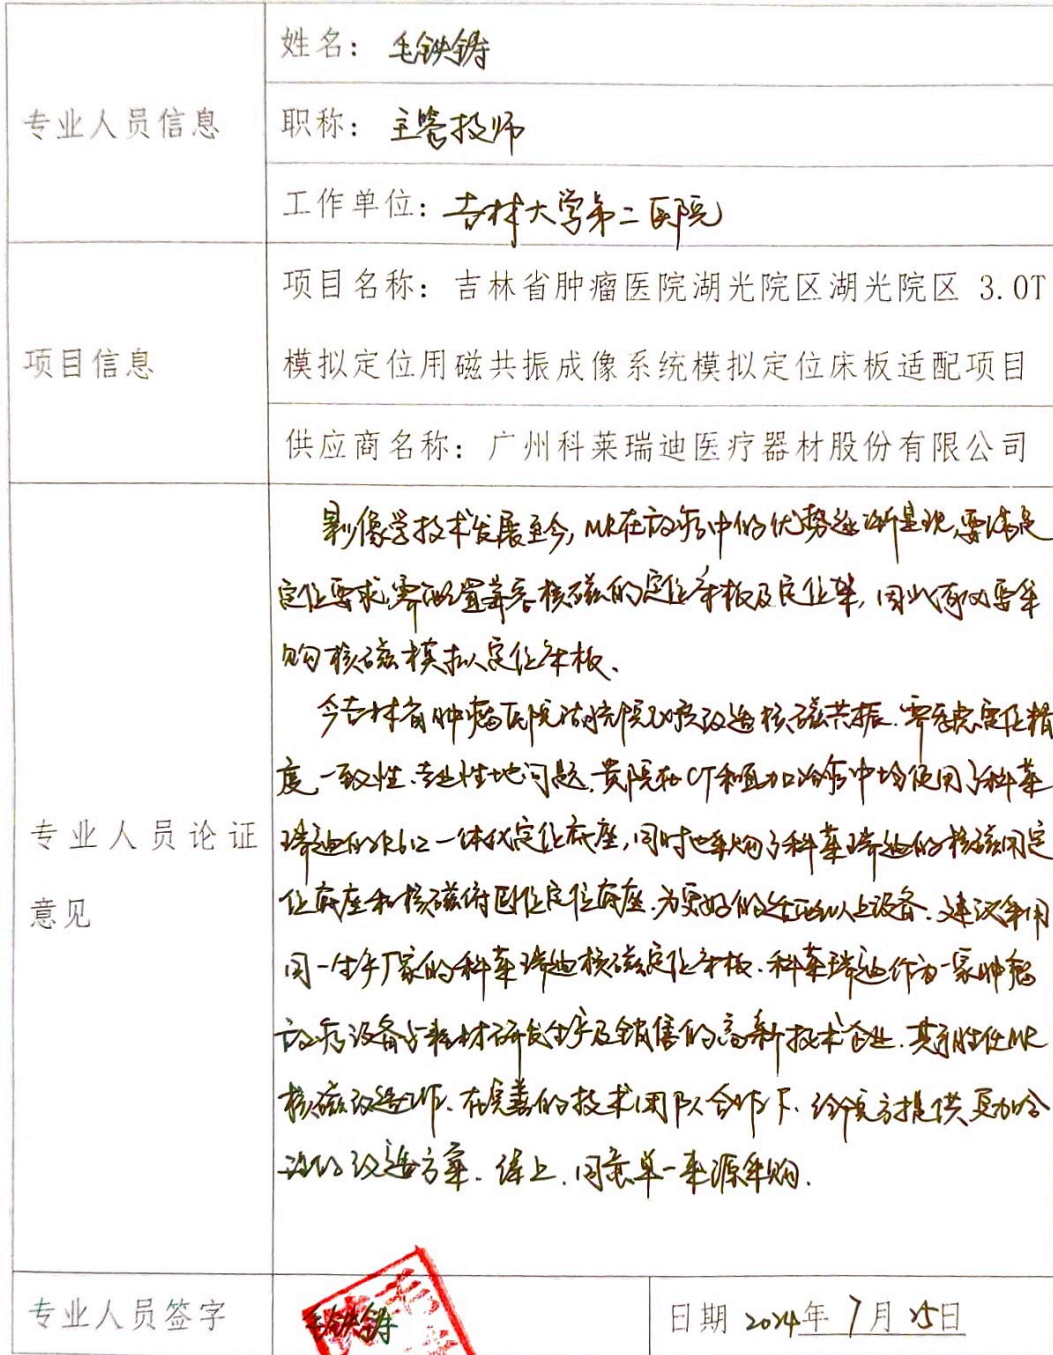 专业人员信息
姓名：毛铁铸
职称：主管技师
工作单位：吉林大学第二医院
项目信息
项目名称：吉林省肿瘤医院湖光院区湖光院区 3.0T
模拟定位用磁共振成像系统模拟定位床板适配项目
供应商名称：广州科莱瑞迪医疗器材股份有限公司
专业人员论证
意见
影像学技术发展至今，MR在放疗中的优势逐渐显现，要满足
定位要求，需配置兼容核磁的定位床板及定位架，因此需要采
购核磁模拟定位床板、
今吉林省肿瘤医院湖光院区改造核磁共振．需考虑定位精
度、一致性、专业性地问题．贵院在CT和直加治疗中均使用了科莱
瑞迪的一体式定位底座，同时也采购了科莱瑞迪的核磁用定
位底座和核磁俯卧位定位底座．为更好的适配以上设备．建议采用
同一生产厂家的科莱瑞迪核磁定位床板．科莱瑞迪作为一家肿瘤
放疗设备与耗材研发生产及销售的高新技术企业．MR
核磁改造工作、在完善的技术团队合作下．给院方提供更加合
改造方案．综上．同意单一来源采购．
专业人员签字
毛铁铸
日期 2024年 7月 25日